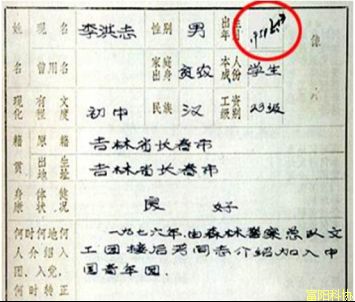 姓名 现名 李洪志 性别 男 出生年月
曾用名 家庭出身 贫农 本人成份 学生
现有文化程度 初中 民族 汉 工资级别 23级
籍贯 原籍 吉林省长春市
出生地址 吉林省长春市
身体健康状况 良好
何时何地何人介绍入团、入党,何时转正 一九七六年,由森林警察总队文
工团接后芳同志介绍加入中
国青年团。
像
富阳科协